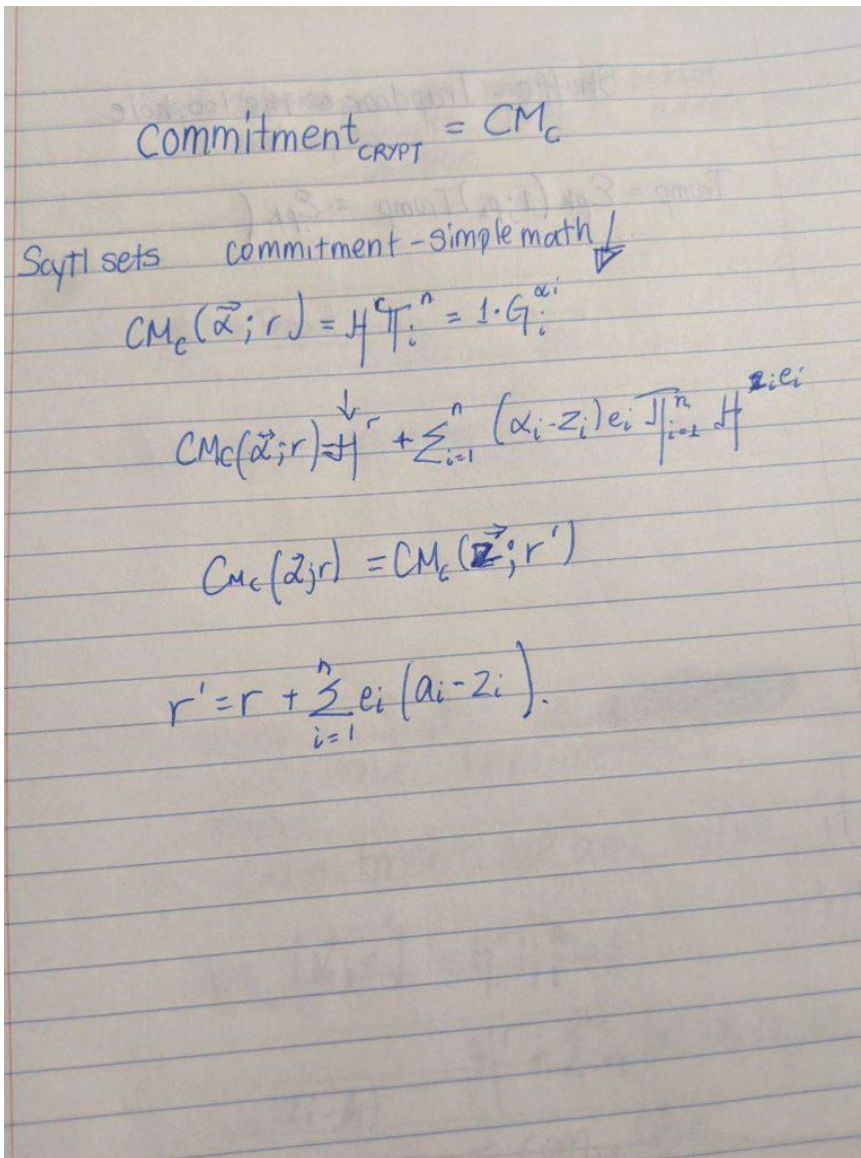 Commitment_CRYPT = CM_c
Scytl sets commitment - simple math!
CM_c(α⃗; r) = H^r ∏_i^n = 1·G_i^{α_i}
CM_c(α⃗; r) = H^r + Σ_{i=1}^n (α_i - z_i) e_i ∏_{i=1}^n H^{z_i e_i}
CM_c(α⃗; r) = CM_c(z⃗; r')
r' = r + Σ_{i=1}^n e_i (a_i - z_i).